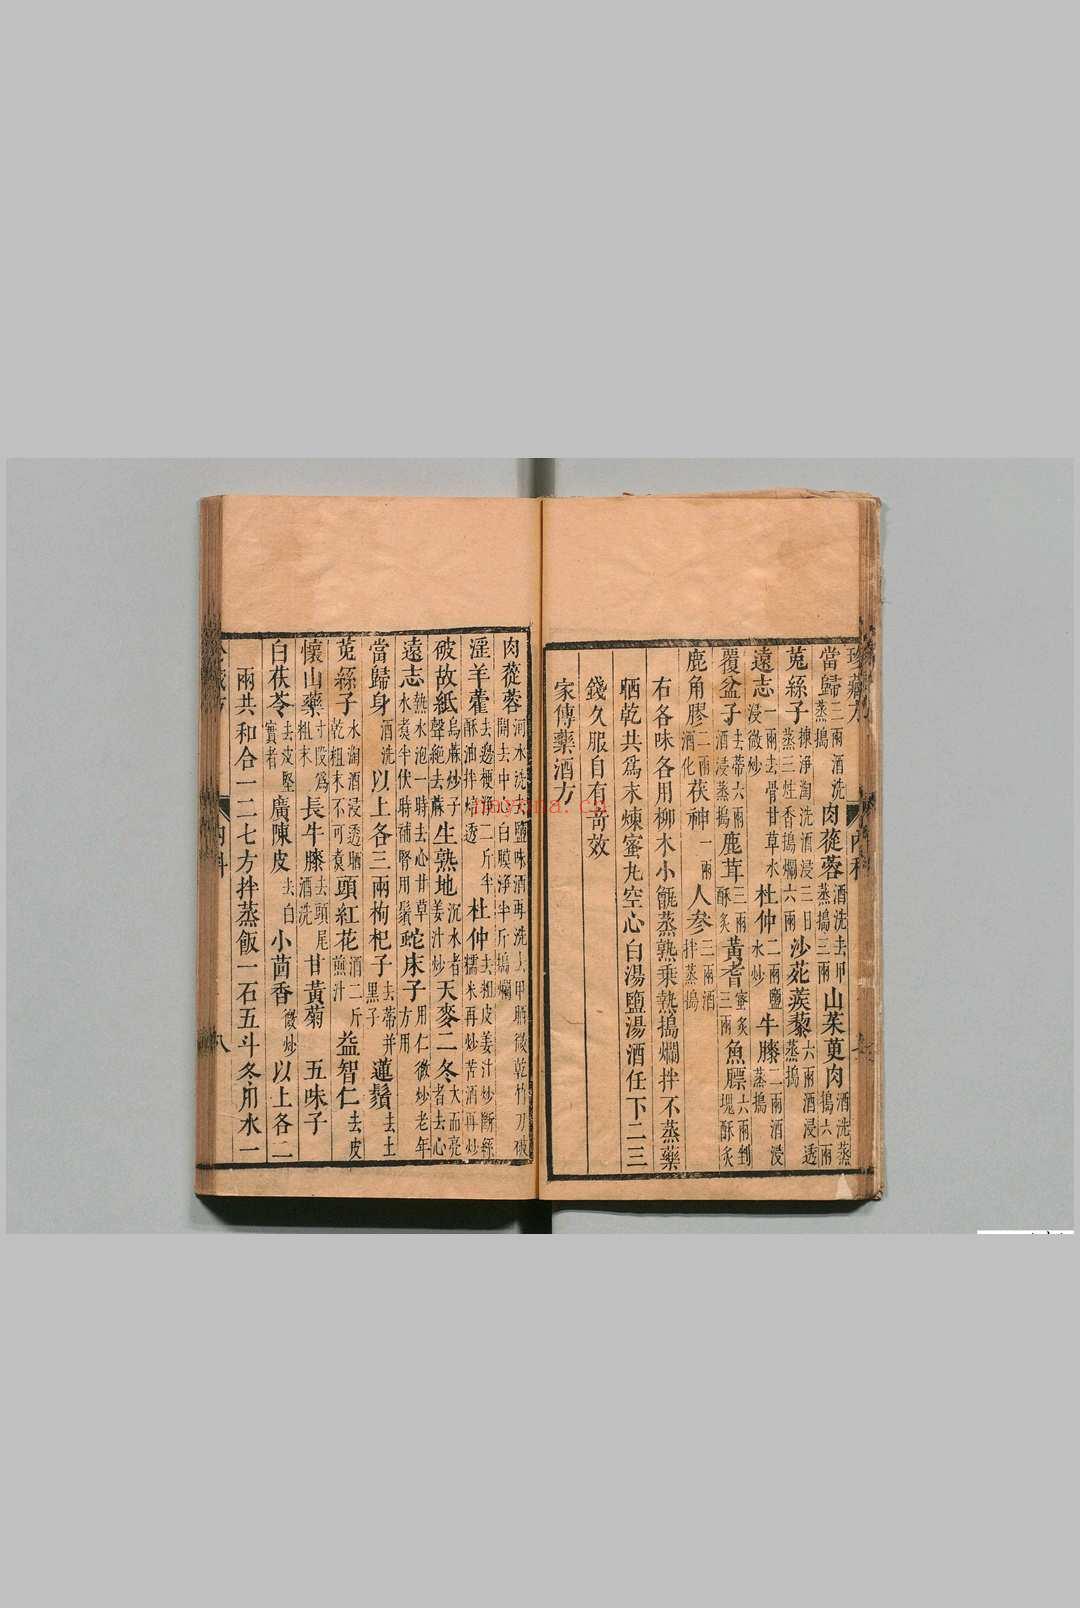 當歸二兩酒洗蒸搗 肉蓯蓉酒洗去甲蒸搗三兩 山茱萸肉酒洗蒸搗六兩
菟絲子揀淨淘洗酒浸三日蒸三炷香搗爛六兩 沙苑蒺藜六兩酒浸透蒸搗
遠志一兩去骨甘草水浸微炒 杜仲二兩鹽水炒 牛膝二兩酒浸蒸搗
覆盆子去蒂六兩酒浸蒸搗 鹿茸三兩酥炙 黃耆蜜炙三兩 魚膘六兩剉塊酥炙
鹿角膠二兩酒化 茯神一兩 人參三兩酒拌蒸搗
右各味各用柳木小甑蒸熟乘熱搗爛拌不蒸藥
晒乾共為末煉蜜丸空心白湯鹽湯酒任下二三
錢久服自有奇效
家傳藥酒方
肉蓯蓉河水洗去鹽味酒再洗大甲晒微乾竹刀破開去中白膜淨半斤搗爛
淫羊藿去邊梗酒二斤半酥油拌焙透 杜仲去粗皮姜汁炒斷絲糯米再炒苦酒再炒
破故紙烏蔴炒子聲絕去蔴 生熟地沉水者姜汁炒 天麥二冬大而亮者去心
遠志熱水泡一時去心甘草水煑半伏時補腎用鬚 蛇床子用仁微炒老年方用
當歸身酒洗 以上各三兩枸杞子去蒂并黑子 蓮鬚去土
菟絲子水淘酒浸透晒乾粗末不可煑 頭紅花酒二斤煎汁 益智仁去皮
懷山藥寸段為粗末 長牛膝去頭尾酒洗 甘黃菊 五味子
白茯苓去皮堅實者 廣陳皮去白 小茴香微炒 以上各二
兩共和合一二七方拌蒸飯一石五斗冬用水一
八